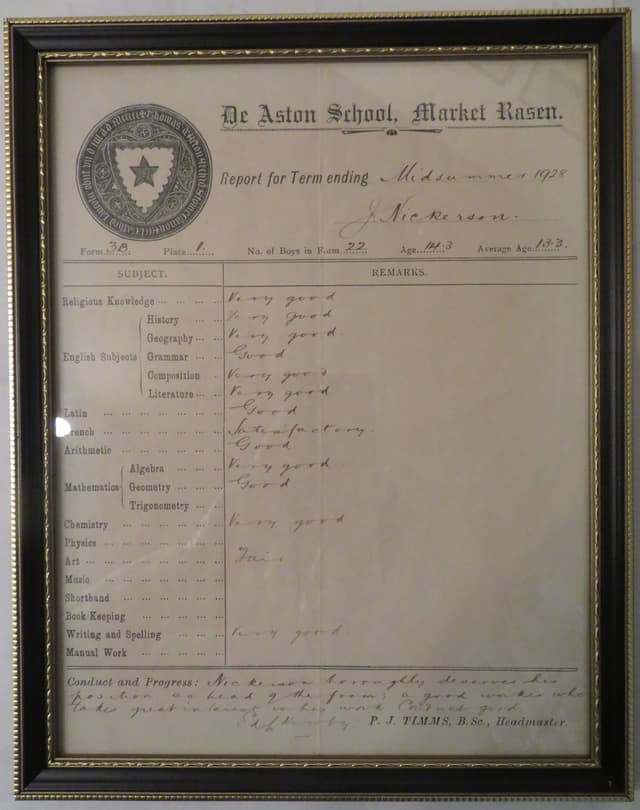 De Aston School, Market Rasen.
Report for Term ending Midsummer 1928
J. Nickerson.
Form 3A Place 1. No. of Boys in Form 22 Age 14.3 Average Age 13.3.
SUBJECT. REMARKS.
Religious Knowledge Very good
History Very good
Geography Very good
English Subjects Grammar Good
Composition Very good
Literature Very good
Latin Good
French Satisfactory.
Arithmetic Good
Algebra Very good
Mathematics Geometry Good
Trigonometry
Chemistry Very good
Physics
Art Fair
Music
Shorthand
Book Keeping
Writing and Spelling Very good
Manual Work
Conduct and Progress: Nickerson thoroughly deserves his
position as head of the form; a good worker who
takes great interest in his work Conduct good
P. J. TIMMS, B.Sc., Headmaster.